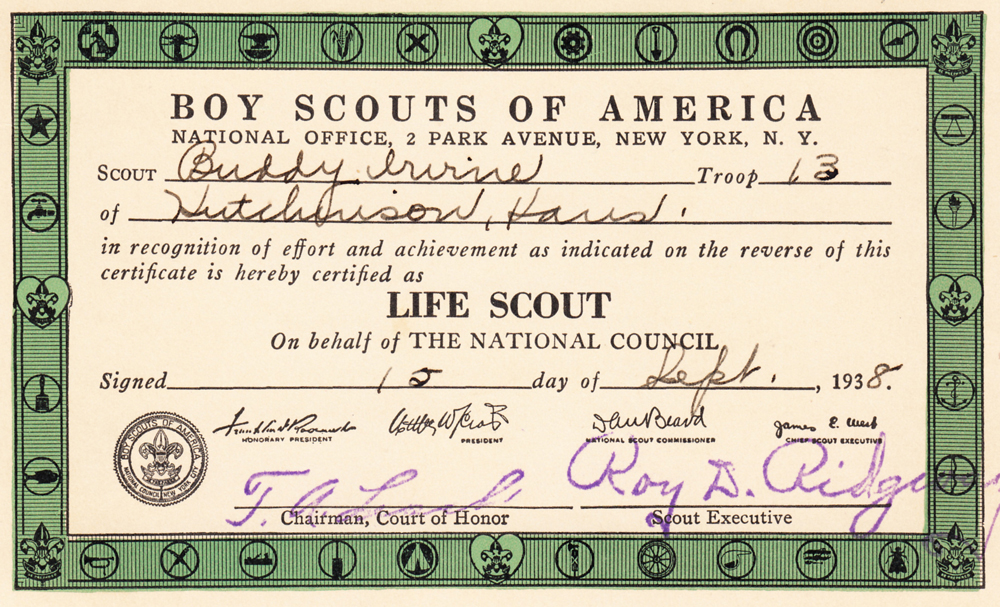 BOY SCOUTS OF AMERICA
NATIONAL OFFICE, 2 PARK AVENUE, NEW YORK, N. Y.
SCOUT Buddy Irvine Troop 13
of Hutchinson, Kans.
in recognition of effort and achievement as indicated on the reverse of this
certificate is hereby certified as
LIFE SCOUT
On behalf of THE NATIONAL COUNCIL
Signed 15 day of Sept., 1938.
Franklin D Roosevelt Walter W Head Dan Beard James E. West
HONORARY PRESIDENT PRESIDENT NATIONAL SCOUT COMMISSIONER CHIEF SCOUT EXECUTIVE
BOY SCOUTS OF AMERICA
NATIONAL COUNCIL NEW YORK CITY
T. A. Roy D. Ridgway
Chairman, Court of Honor Scout Executive